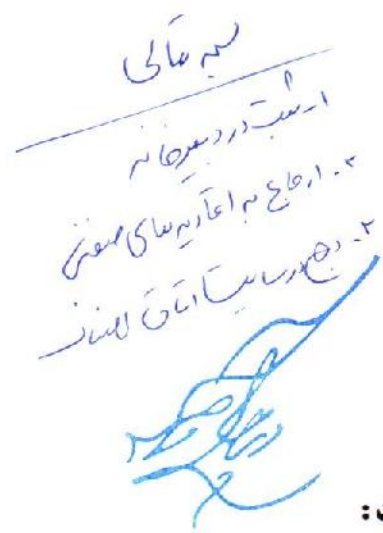 بسمه تعالی
۱- ثبت در دبیرخانه
۲- ارجاع به اتحادیه های صنفی
۳- درج در سایت اتاق اصناف
: